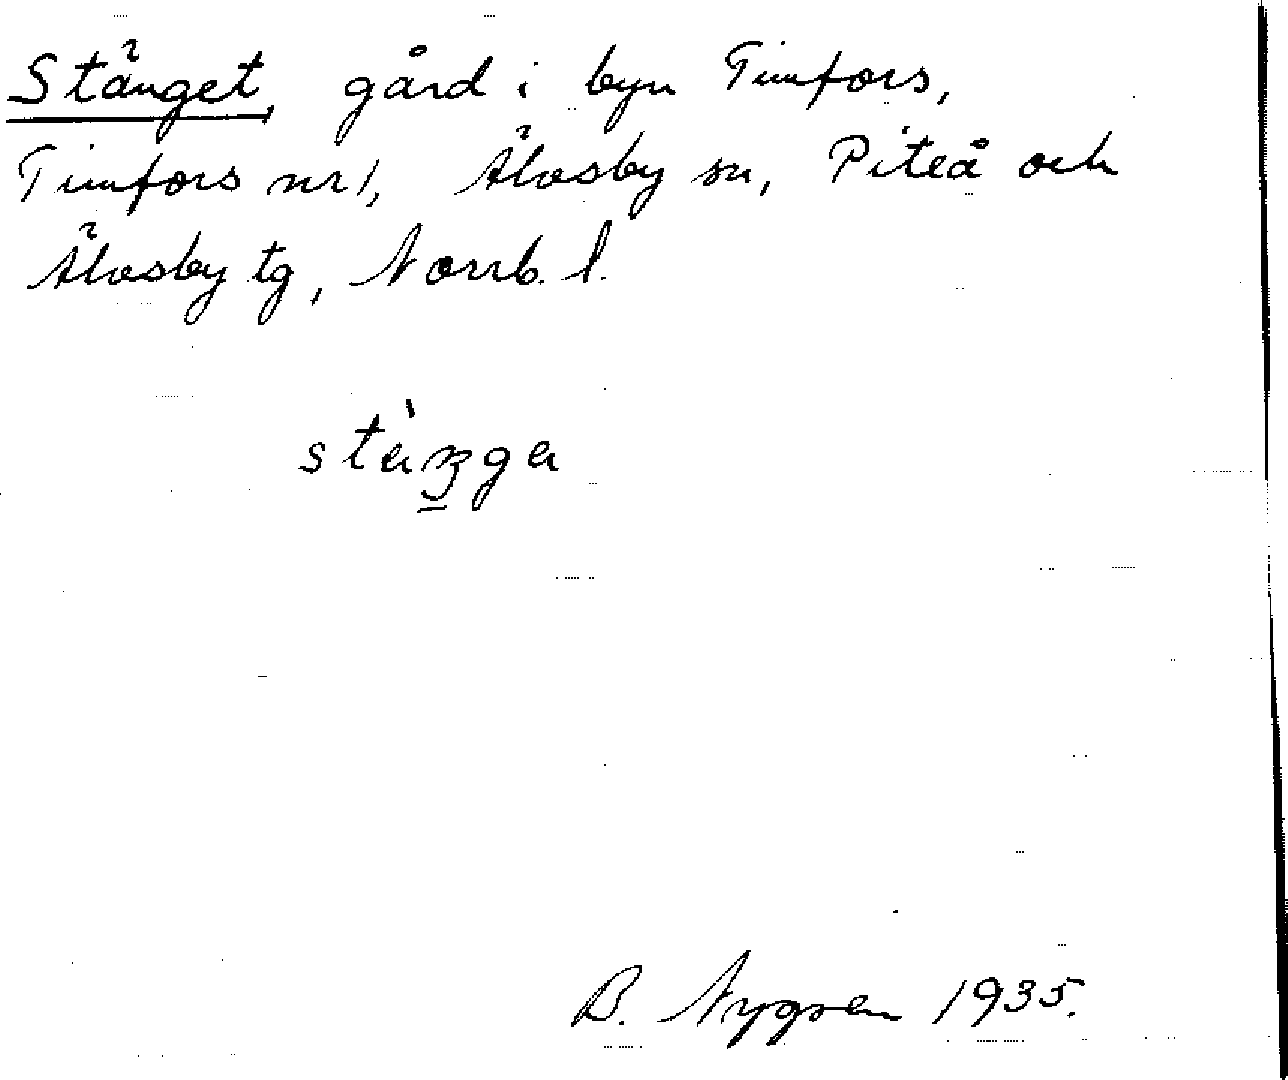 Stänget, gård i byn Timfors,
Timfors nr 1, Älvsby sn, Piteå och
Älvsby tg, Norrb. l.
B. Nygren 1935.